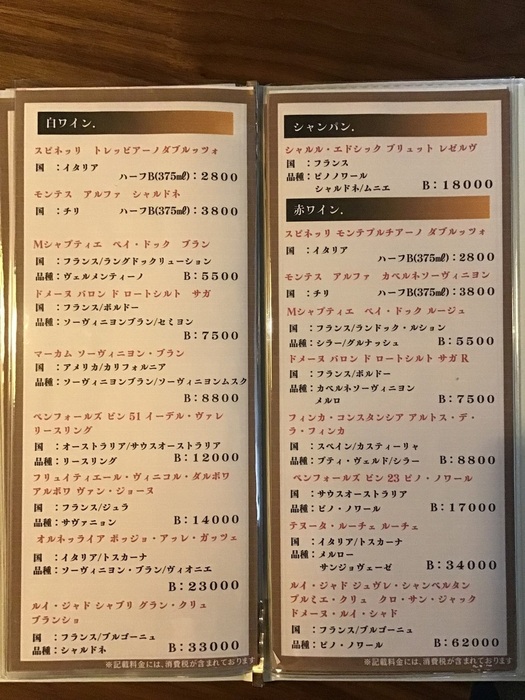 白ワイン.
スピネッリ トレッビアーノダブルッツォ
国 ：イタリア
ハーフB(375㎖)：2800
モンテス アルファ シャルドネ
国 ：チリ ハーフB(375㎖)：3800
Mシャプティエ ベイ・ドック ブラン
国 ：フランス/ラングドックリューション
品種：ヴェルメンティーノ B：5500
ドメーヌ バロン ド ロートシルト サガ
国 ：フランス/ボルドー
品種：ソーヴィニヨンブラン/セミヨン
B：7500
マーカム ソーヴィニヨン・ブラン
国 ：アメリカ/カリフォルニア
品種：ソーヴィニヨンブラン/ソーヴィニヨンムスク
B：8800
ペンフォールズ ビン 51 イーデル・ヴァレー
リースリング
国 ：オーストラリア/サウスオーストラリア
品種：リースリング B：12000
フリュイティエール・ヴィニコル・ダルボワ
アルボワ ヴァン・ジョーヌ
国 ：フランス/ジュラ
品種：サヴァニョン B：14000
オルネッライア ポッジョ・アッレ・ガッツェ
国 ：イタリア/トスカーナ
品種：ソーヴィニヨン・ブラン/ヴィオニエ
B：23000
ルイ・ジャド シャブリ グラン・クリュ
ブランショ
国 ：フランス/ブルゴーニュ
品種：シャルドネ B：33000
※記載料金には、消費税が含まれております
シャンパン.
シャルル・エドシック ブリュット レゼルヴ
国 ：フランス
品種：ピノノワール
シャルドネ/ムニエ B：18000
赤ワイン.
スピネッリ モンテプルチアーノ ダブルッツォ
国 ：イタリア
ハーフB(375㎖)：2800
モンテス アルファ カベルネソーヴィニヨン
国 ：チリ ハーフB(375㎖)：3800
Mシャプティエ ベイ・ドック ルージュ
国 ：フランス/ランドック・ルション
品種：シラー/グルナッシュ B：5500
ドメーヌ バロン ド ロートシルト サガ R
国 ：フランス/ボルドー
品種：カベルネソーヴィニヨン
メルロ B：7500
フィンカ・コンスタンシア アルトス・デ・
ラ・フィンカ
国 ：スペイン/カスティーリャ
品種：プティ・ヴェルド/シラー B：8800
ペンフォールズ ビン 23 ピノ・ノワール
国 ：サウスオーストラリア
品種：ピノ・ノワール B：17000
テヌータ・ルーチェ ルーチェ
国 ：イタリア/トスカーナ
品種：メルロー
サンジョヴェーゼ B：34000
ルイ・ジャド ジュヴレ・シャンベルタン
プルミエ・クリュ クロ・サン・ジャック
ドメーヌ・ルイ・ジャド
国 ：フランス/ブルゴーニュ
品種：ピノ・ノワール B：62000
※記載料金には、消費税が含まれております